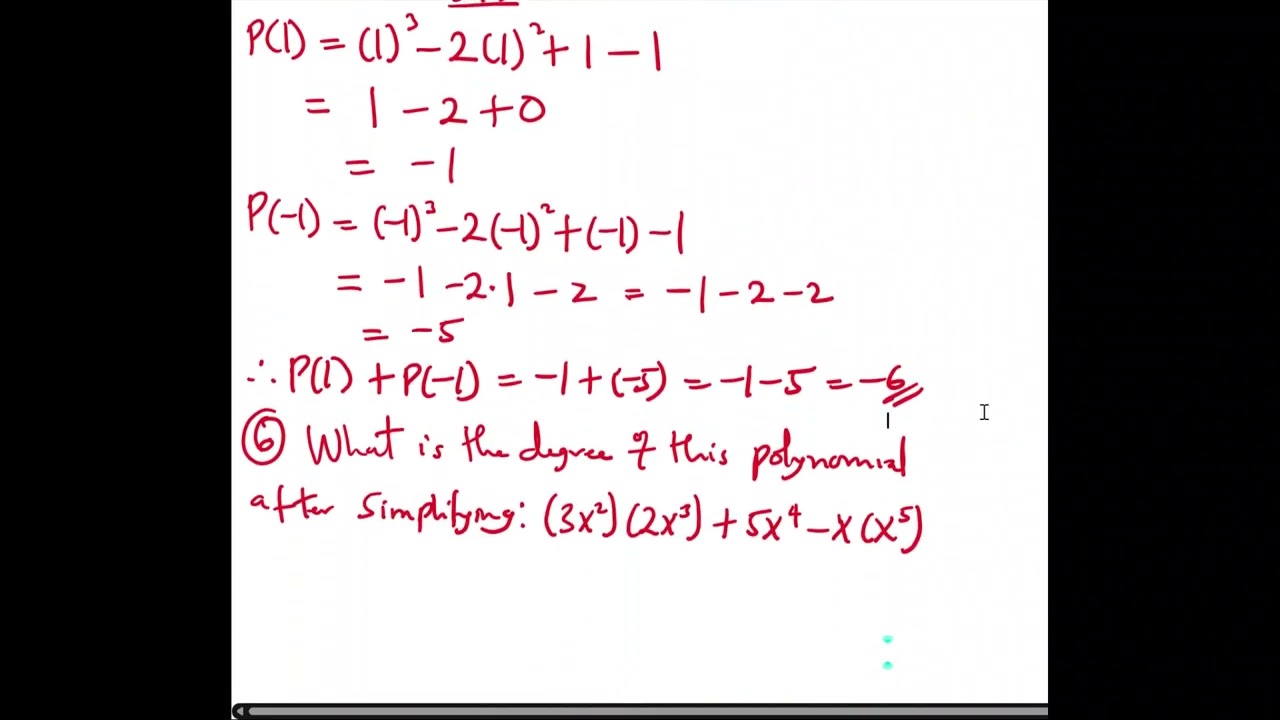 P(1) = (1)³ - 2(1)² + 1 - 1
= 1 - 2 + 0
= -1
P(-1) = (-1)³ - 2(-1)² + (-1) - 1
= -1 - 2·1 - 2 = -1 - 2 - 2
= -5
∴ P(1) + P(-1) = -1 + (-5) = -1 - 5 = -6
⑥ What is the degree of this polynomial
after simplifying: (3x²)(2x³) + 5x⁴ - x(x⁵)